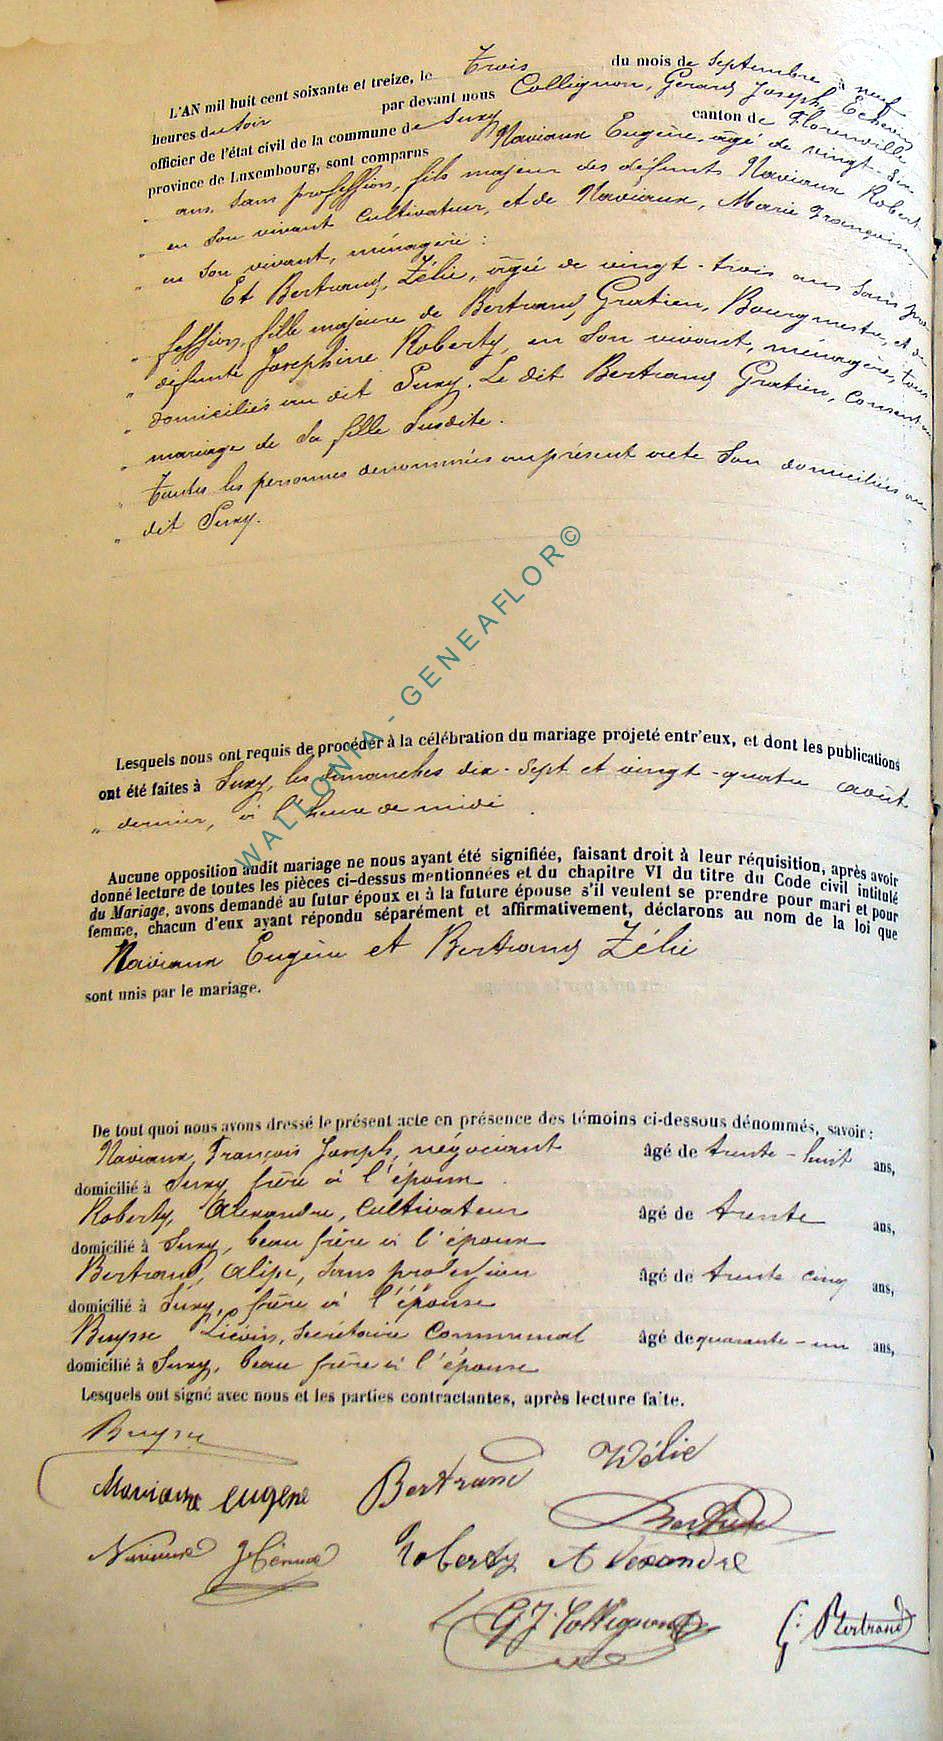 L'AN mil huit cent soixante et treize, le Trois du mois de Septembre à neuf
heures du Soir par devant nous Collignon, Gérard Joseph, Echevin
officier de l'état civil de la commune de Suxy canton de Florenville
province de Luxembourg, sont comparus Naviaux Eugène, âgé de vingt-six
ans, Sans profession, fils majeur des défunts Naviaux Robert
en Son vivant Cultivateur, et de Naviaux, Marie Françoise
en Son vivant, ménagère :
Et Bertrand, Zélie, âgée de vingt-trois ans Sans pro-
fession, fille majeure de Bertrand Gratien, Bourgmestre, et de
défunte Josephine Roberty, en Son vivant, ménagère, tous
domiciliés au dit Suxy. Le dit Bertrand Gratien, Consent au
mariage de Sa fille Susdite.
Toutes les personnes dénommées au présent acte Son domiciliées au
dit Suxy.
WALLONIA - GENEAFLOR©
Lesquels nous ont requis de procéder à la célébration du mariage projeté entr'eux, et dont les publications
ont été faites à Suxy, les dimanches dix-sept et vingt-quatre août
dernier, à l'heure de midi
Aucune opposition audit mariage ne nous ayant été signifiée, faisant droit à leur réquisition, après avoir
donné lecture de toutes les pièces ci-dessus mentionnées et du chapitre VI du titre du Code civil intitulé
du Mariage, avons demandé au futur époux et à la future épouse s'il veulent se prendre pour mari et pour
femme, chacun d'eux ayant répondu séparément et affirmativement, déclarons au nom de la loi que
Naviaux Eugène et Bertrand Zélie
sont unis par le mariage.
De tout quoi nous avons dressé le présent acte en présence des témoins ci-dessous dénommés, savoir :
Naviaux, François Joseph, négociant âgé de trente-huit ans,
domicilié à Suxy, frère à l'époux
Roberty, Alexandre, Cultivateur âgé de trente ans,
domicilié à Suxy, beau frère à l'époux
Bertrand, Alipe, Sans profession âgé de trente cinq ans,
domicilié à Suxy, frère à l'épouse
Buysse Liévin, Secrétaire Communal âgé de quarante-un ans,
domicilié à Suxy, beau frère à l'épouse
Lesquels ont signé avec nous et les parties contractantes, après lecture faite.
Buysse
Naviaux eugene Bertrand Zélie
Bertrand
Naviaux Roberty Alexandre
G. J. Collignon G. Bertrand